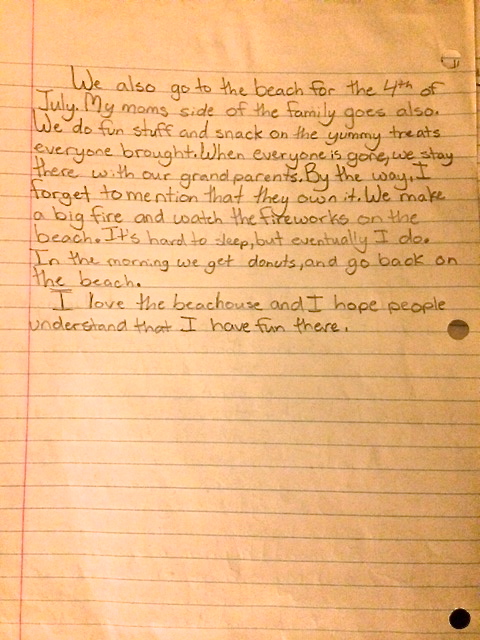 We also go to the beach for the 4th of
July. My moms side of the family goes also.
We do fun stuff and snack on the yummy treats
everyone brought. When everyone is gone, we stay
there with our grandparents. By the way, I
forget to mention that they own it. We make
a big fire and watch the fireworks on the
beach. It's hard to sleep, but eventually I do.
In the morning we get donuts, and go back on
the beach.
I love the beachouse and I hope people
understand that I have fun there.